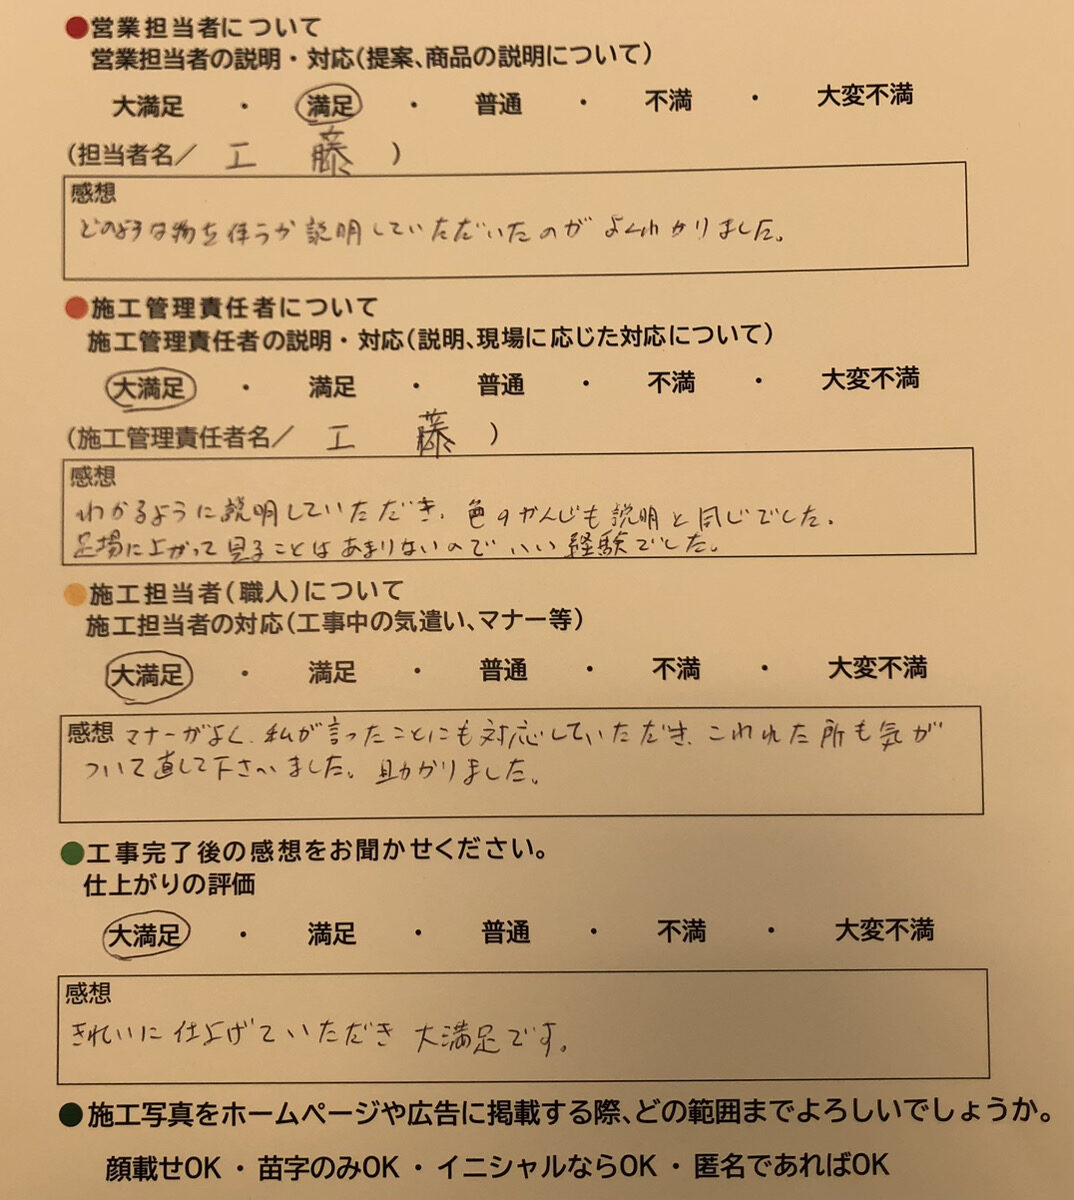 ●営業担当者について
営業担当者の説明・対応(提案、商品の説明について)
大満足 ・ 満足 ・ 普通 ・ 不満 ・ 大変不満
(担当者名／ 工 藤 )
感想
どのような物を使うか説明していただいたのがよくわかりました。
●施工管理責任者について
施工管理責任者の説明・対応(説明、現場に応じた対応について)
大満足 ・ 満足 ・ 普通 ・ 不満 ・ 大変不満
(施工管理責任者名／ 工 藤 )
感想
わかるように説明していただき、色のかんじも説明と同じでした。
足場に上がって見ることはあまりないのでいい経験でした。
●施工担当者(職人)について
施工担当者の対応(工事中の気遣い、マナー等)
大満足 ・ 満足 ・ 普通 ・ 不満 ・ 大変不満
感想 マナーがよく、私が言ったことにも対応していただき、これわれた所も気が
ついて直して下さいました。助かりました。
●工事完了後の感想をお聞かせください。
仕上がりの評価
大満足 ・ 満足 ・ 普通 ・ 不満 ・ 大変不満
感想
きれいに仕上げていただき 大満足です。
●施工写真をホームページや広告に掲載する際、どの範囲までよろしいでしょうか。
顔載せOK ・ 苗字のみOK ・ イニシャルならOK ・ 匿名であればOK